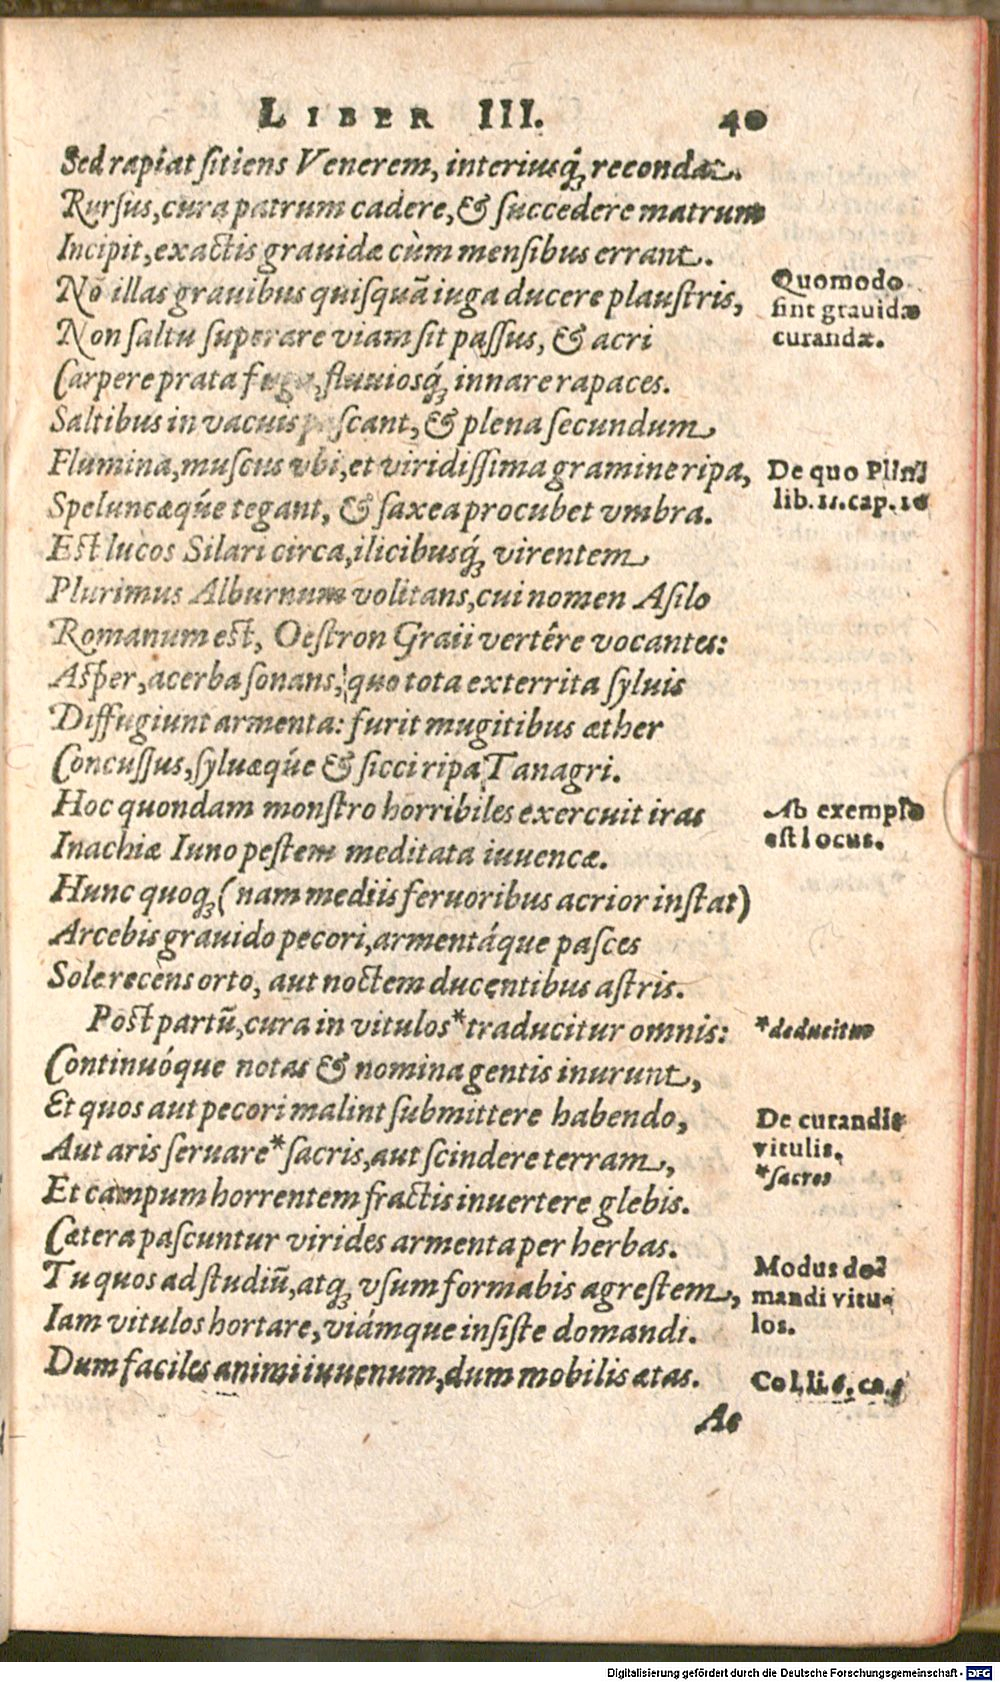 LIBER III. 40
Sed rapiat sitiens Venerem, interiusq́ꝫ recondat.
Rursus, cura patrum cadere, & succedere matrum
Incipit, exactis grauidæ cùm mensibus errant.
Nō illas grauibus quisquā iuga ducere plaustris,
Quomodo
sint grauidæ
curandæ.
Non saltu superare viam sit passus, & acri
Carpere prata fuga, fluuiosq́ꝫ innare rapaces.
Saltibus in vacuis pascant, & plena secundum
Flumina, muscus vbi, et viridissima gramine ripa,
De quo Plin.
lib. 11. cap. 16
Speluncæq́ue tegant, & saxea procubet vmbra.
Est lucos Silari circa, ilicibusq́ꝫ virentem
Plurimus Alburnum volitans, cui nomen Asilo
Romanum est, Oestron Graii vertêre vocantes:
Asper, acerba sonans, quo tota exterrita syluis
Diffugiunt armenta: furit mugitibus æther
Concussus, syluæq́ue & sicci ripa Tanagri.
Hoc quondam monstro horribiles exercuit iras
Ab exemplo
est locus.
Inachiæ Iuno pestem meditata iuuencæ.
Hunc quoqꝫ (nam mediis feruoribus acrior instat)
Arcebis grauido pecori, armentáque pasces
Sole recens orto, aut noctem ducentibus astris.
Post partū, cura in vitulos *traducitur omnis:
*deducitur
Continuóque notas & nomina gentis inurunt,
Et quos aut pecori malint submittere habendo,
De curandis
vitulis.
Aut aris seruare *sacris, aut scindere terram,
*sacros
Et campum horrentem fractis inuertere glebis.
Cætera pascuntur virides armenta per herbas.
Tu quos ad studiū, atqꝫ vsum formabis agrestem,
Modus do-
mandi vitu-
los.
Iam vitulos hortare, viámque insiste domandi.
Dum faciles animi iuuenum, dum mobilis ætas.
Col. li. 6. ca.
Ac
Digitalisierung gefördert durch die Deutsche Forschungsgemeinschaft - DFG